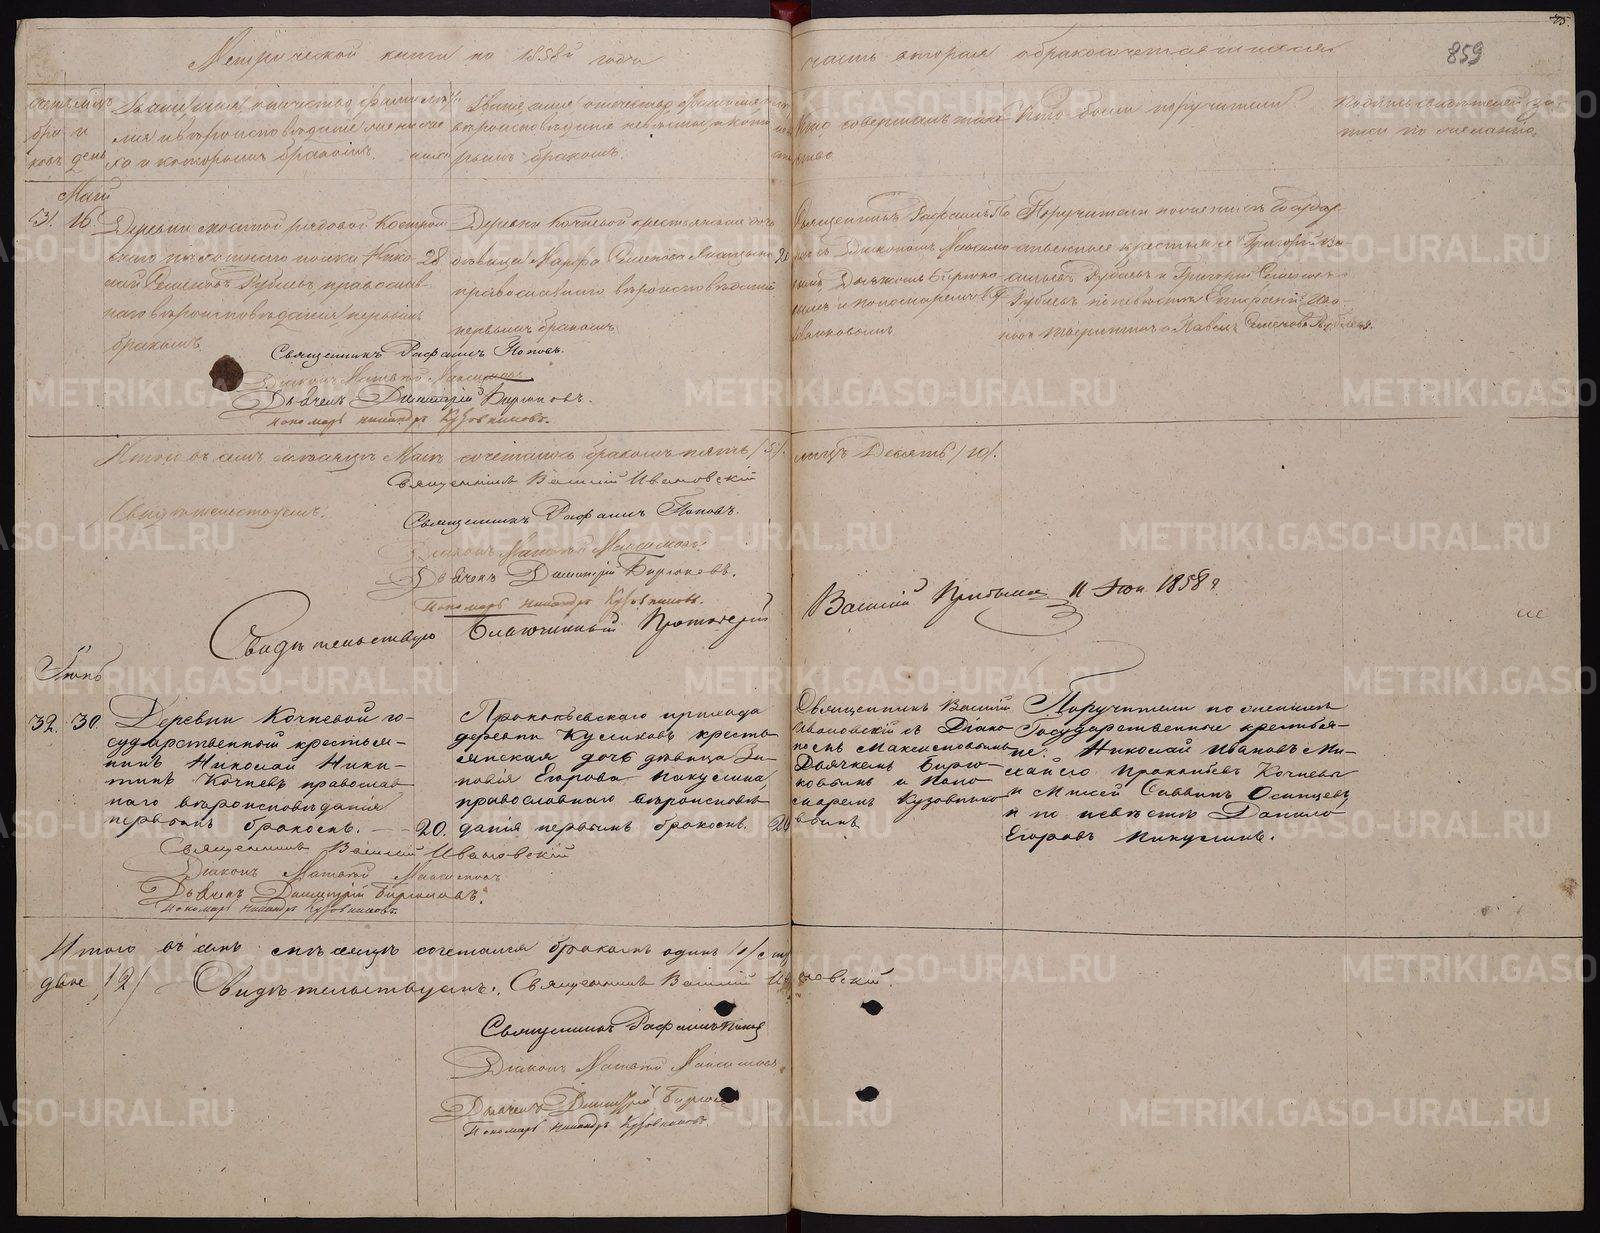 Метрической книги на 1858й годъ
часть вторая о бракосочетавшихся
859
75.
Счетъ
бра
ковъ
и
день
Званіе, имя, отчество, фамилія
и вѣроисповѣданіе жениха
и которымъ бракомъ.
Званіе, имя, отчество, фамилія
вѣроисповѣданіе невѣсты, и кото
рымъ бракомъ.
Кто совершалъ таин
ство
Кто были поручители
Подпись свидѣтелей за
писи по желанію.
Май
31. 16.
Деревни рядовой Костром
скаго полка Нико 28
лай Семеновъ Рублевъ, православ
наго вѣроисповѣданія, первымъ
бракомъ.
Деревни Кочневой крестьянская дочь
дѣвица Марфа Семенова
православнаго вѣроисповѣданія
первымъ бракомъ
Священникъ Рафаилъ По
повъ Діакономъ Максимо
вымъ Дьячкомъ Бирюко
вымъ и пономаремъ Ку
зовниковымъ
Поручители по женихѣ Государ
ственные крестьяне Григорій Ва
сильевъ Рублевъ и Григорій Семеновъ
Рублевъ по невѣстѣ
и Павелъ Семеновъ Рублевъ.
Священникъ Рафаилъ Поповъ.
Діаконъ Матвѣй Максимовъ
Дьячекъ Димитрій Бирюковъ.
Пономарь Никандръ Кузовниковъ.
Итого въ семъ мѣсяцѣ Маѣ сочеталось бракомъ пять /5/.
лицъ Десять /10/.
Священникъ Василій Ивановскій
Свидѣтельствуемъ.
Священникъ Рафаилъ Поповъ.
Діаконъ Матвѣй Максимовъ
Дьячекъ Димитрій Бирюковъ.
Пономарь Никандръ Кузовниковъ.
Свидѣтельствую Благочинный Протоіерей
Василій 11 Іюн 1858 г
Іюнь
32. 30.
Деревни Кочневой го-
сударственный крестья-
нинъ Николай Ники-
тинъ Кочневъ православ
наго вѣроисповѣданія
первымъ бракомъ. — 20.
Прокопьевскаго прихода
деревни Куликовъ кресть
янская дочь дѣвица Зи-
новія Егорова Пикулина,
православнаго вѣроисповѣ
данія первымъ бракомъ. 20
Священникъ Василій
Ивановскій съ Діако
номъ Максимовымъ
Дьячкомъ Бирю-
ковымъ и Поно
маремъ Кузовнико
вымъ
Поручители по женихѣ
Государственные крестья-
не: Николай Ивановъ Ми-
хайло Прокопьевъ Кочневы
и Моисей Саввинъ Осинцевъ
и по невѣстѣ Данило
Егоровъ Пикулинъ.
Священникъ Василій Ивановскій
Діаконъ Матвѣй Максимовъ
Дьячекъ Димитрій Бирюковъ.
Пономарь Никандръ Кузовниковъ.
Итого въ семъ мѣсяцѣ сочетался бракомъ одинъ /1/ лиц
двое /2/ Свидѣтельствуемъ: Священникъ Василій Ивановскій.
Священникъ Рафаилъ Поповъ
Діаконъ Матвѣй Максимовъ
Дьячекъ Димитрій Бирюковъ
Пономарь Никандръ Кузовниковъ.
METRIKI.GASO-URAL.RU